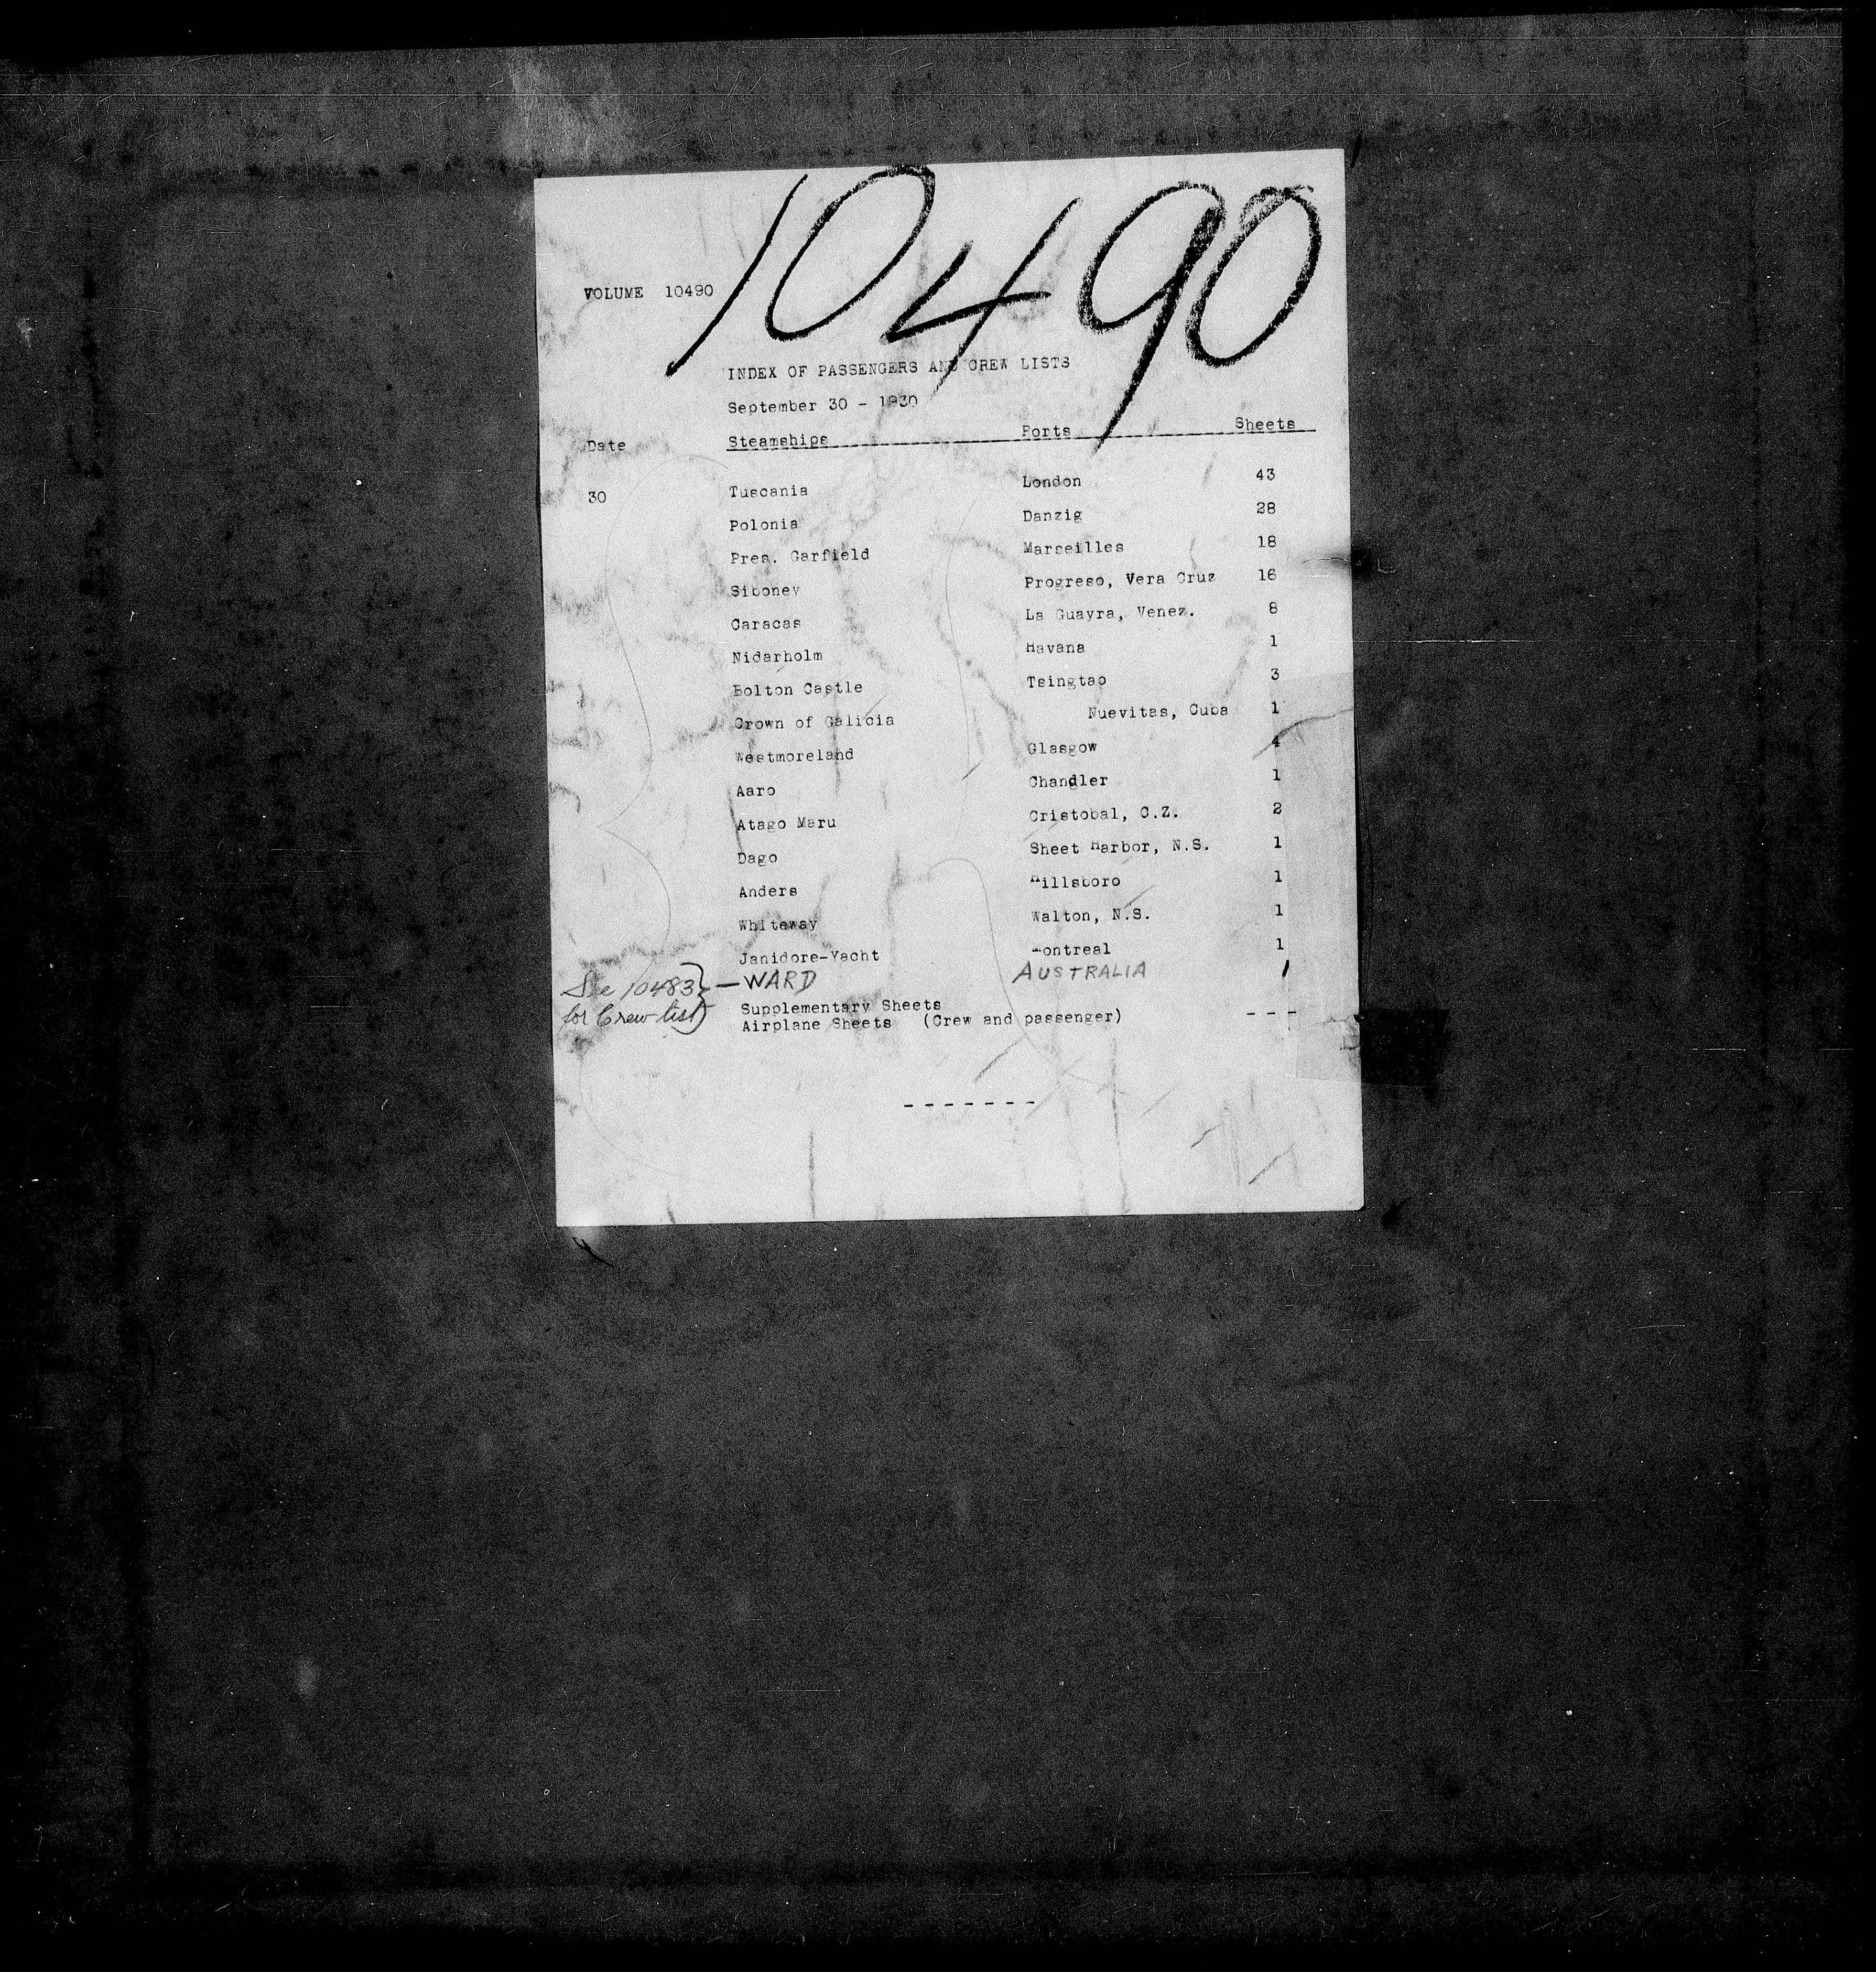 10490
VOLUME 10490
INDEX OF PASSENGERS AND CREW LISTS
September 30 - 1930
Date Steamships Ports Sheets
30 Tuscania London 43
Polonia Danzig 28
Pres. Garfield Marseilles 18
Siboney Progreso, Vera Cruz 16
Caracas La Guayra, Venez. 8
Nidarholm Havana 1
Bolton Castle Tsingtao 3
Crown of Galicia Nuevitas, Cuba 1
Westmoreland Glasgow 4
Aaro Chandler 1
Atago Maru Cristobal, C.Z. 2
Dago Sheet Harbor, N.S. 1
Anders Hillsboro 1
Whiteway Walton, N.S. 1
Janidore-Yacht Montreal 1
See 10483 } — WARD AUSTRALIA 1
for Crew list)
Supplementary Sheets
Airplane Sheets (Crew and passenger) - - -
- - - - - - -